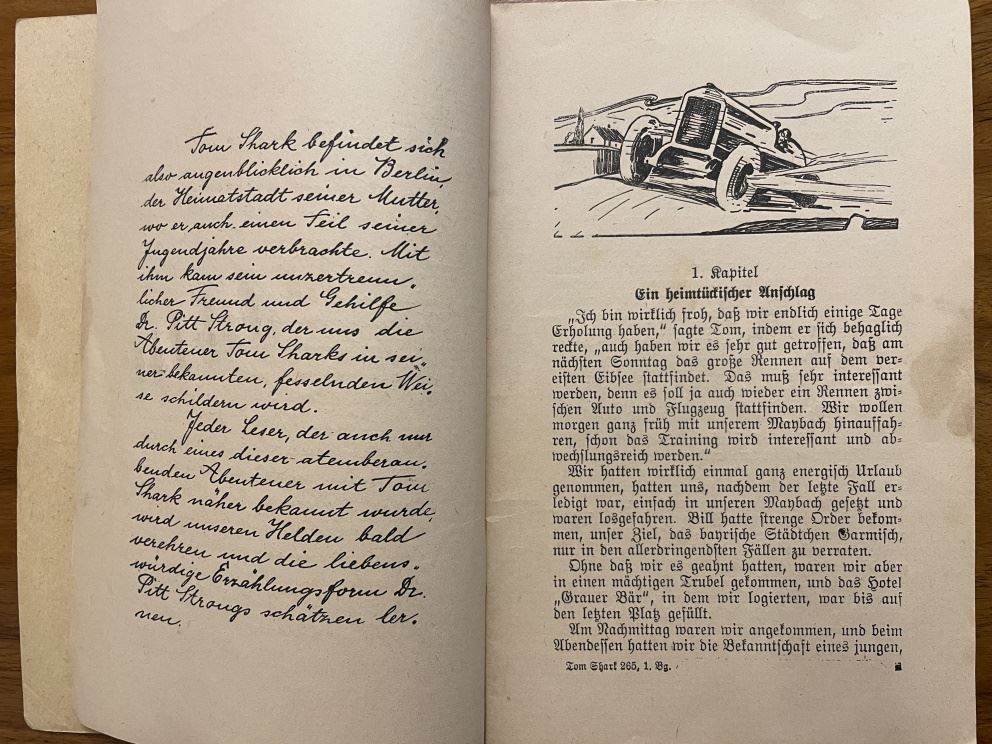 Tom Shark befindet sich
also augenblicklich in Berlin,
der Heimatstadt seiner Mutter,
wo er auch einen Teil seiner
Jugendjahre verbrachte. Mit
ihm kam sein unzertrenn-
licher Freund und Gehilfe
Dr. Pitt Strong, der uns die
Abenteuer Tom Sharks in sei-
ner bekannten, fesselnden Wei-
se schildern wird.
Jeder Leser, der auch nur
durch eines dieser atemberau-
benden Abenteuer mit Tom
Shark näher bekannt wurde,
wird unseren Helden bald
verehren und die liebens-
würdige Erzählungsform Dr.
Pitt Strongs schätzen ler-
nen.
1. Kapitel
Ein heimtückischer Anschlag
„Ich bin wirklich froh, daß wir endlich einige Tage
Erholung haben,“ sagte Tom, indem er sich behaglich
reckte, „auch haben wir es sehr gut getroffen, daß am
nächsten Sonntag das große Rennen auf dem ver-
eisten Eibsee stattfindet. Das muß sehr interessant
werden, denn es soll ja auch wieder ein Rennen zwi-
schen Auto und Flugzeug stattfinden. Wir wollen
morgen ganz früh mit unserem Maybach hinauffah-
ren, schon das Training wird interessant und ab-
wechslungsreich werden.“
Wir hatten wirklich einmal ganz energisch Urlaub
genommen, hatten uns, nachdem der letzte Fall er-
ledigt war, einfach in unseren Maybach gesetzt und
waren losgefahren. Bill hatte strenge Order bekom-
men, unser Ziel, das bayrische Städtchen Garmisch,
nur in den allerdringendsten Fällen zu verraten.
Ohne daß wir es geahnt hatten, waren wir aber
in einen mächtigen Trubel gekommen, und das Hotel
„Grauer Bär“, in dem wir logierten, war bis auf
den letzten Platz gefüllt.
Am Nachmittag waren wir angekommen, und beim
Abendessen hatten wir die Bekanntschaft eines jungen,
Tom Shark 265, 1. Bg.